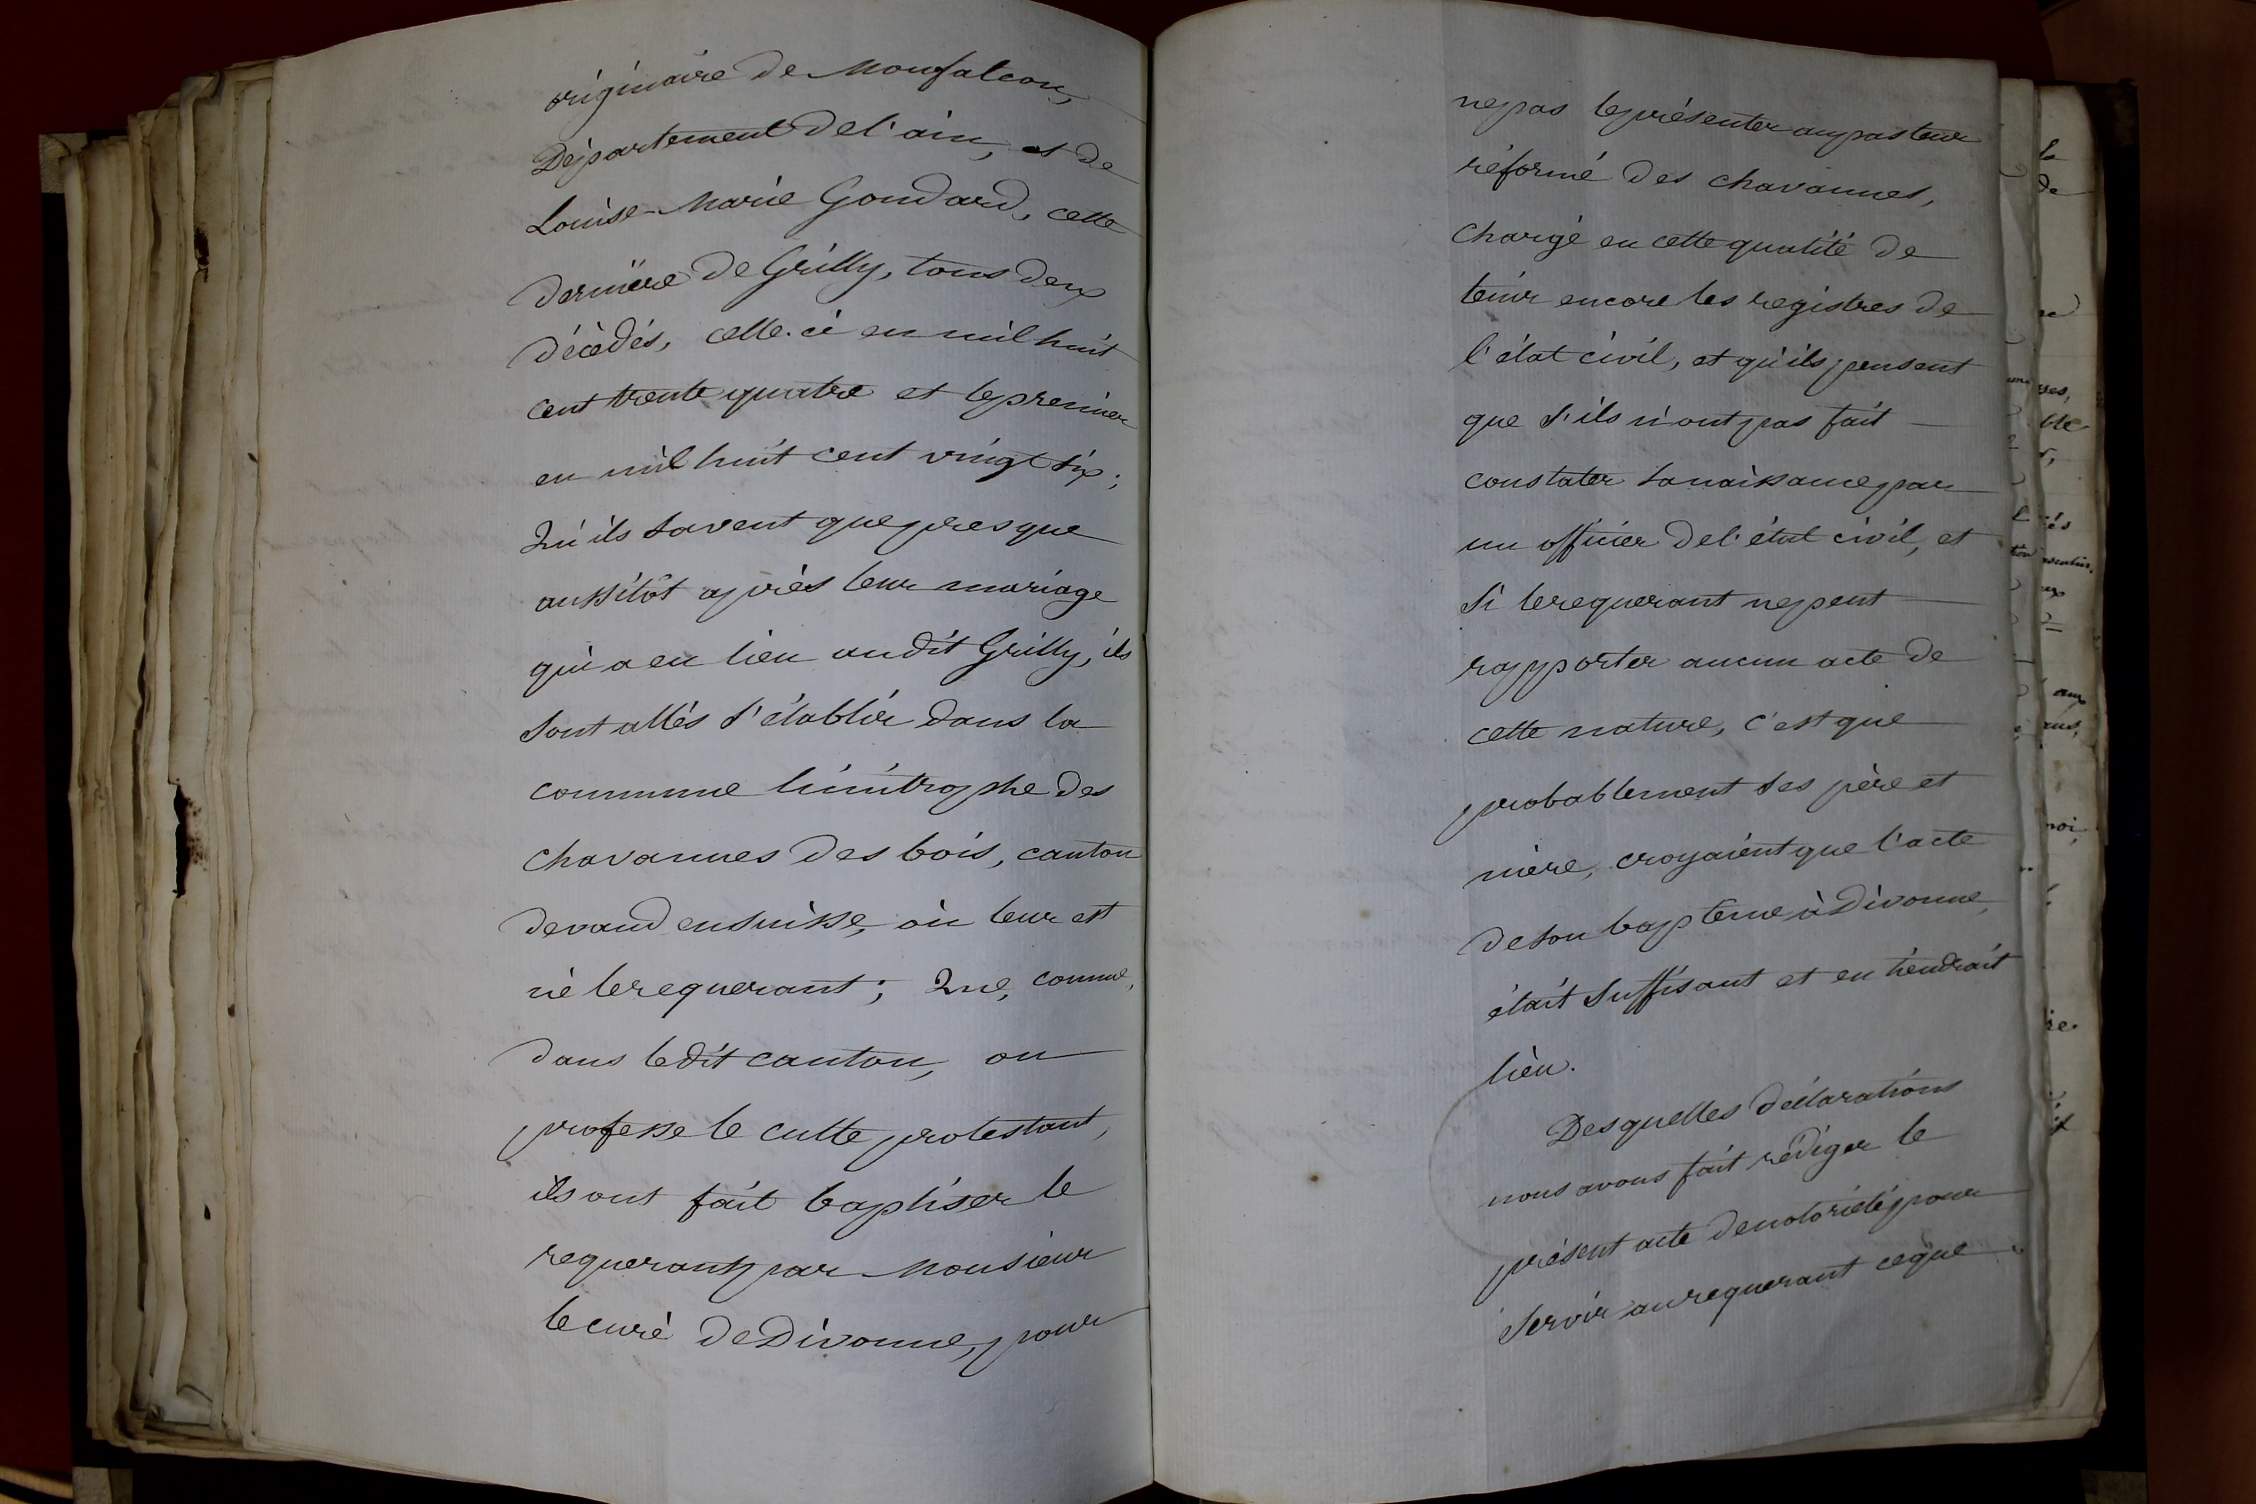 originaire de Monfalcon,
Département de l'ain, et de
Louise-Marie Goudard, cette
dernière de Grilly, tous deux
décèdés, celle-ci en mil huit
cent trente quatre et le premier
en mil huit cent vingt six;
Qu'ils savent que presque
aussitôt après leur mariage
qui a eu lieu audit Grilly, ils
sont allés s'établir dans la
commune limitrophe des
chavannes des bois, canton
de vaud en suisse, où leur est
né le requerant; Que, comme,
dans le dit canton, on
professe le culte protestant,
ils ont fait baptiser le
requerant par Monsieur
le curé de Divonne, pour
ne pas le présenter au pasteur
réformé des chavannes,
chargé en cette qualité de
tenir encore les registres de
l'état civil, et qu'ils pensent
que s'ils n'ont pas fait
constater sa naissance par
un officier de l'état civil, et
si le requerant ne peut
rapporter aucun acte de
cette nature, c'est que
probablement ses père et
mère, croyaient que l'acte
de son baptême à Divonne,
était suffisant et en tiendrait
lieu.
Desquelles déclarations
nous avons fait rédiger le
présent acte de notoriété pour
servir au requerant ce que